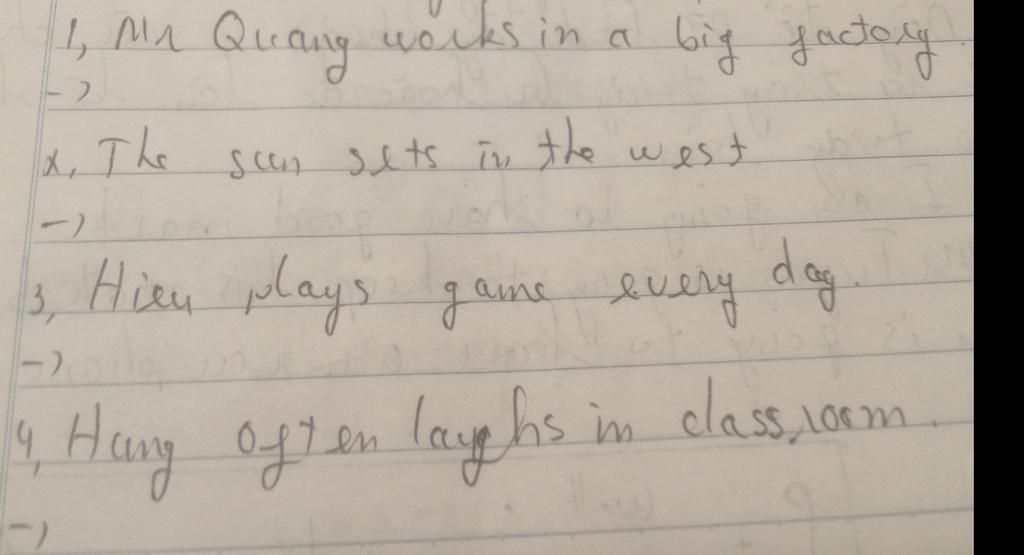 1, Mr Quang works in a big factory.
->
2, The sun sets in the west
->
3, Hieu plays game every day.
->
4, Hung often laughs in classroom.
->